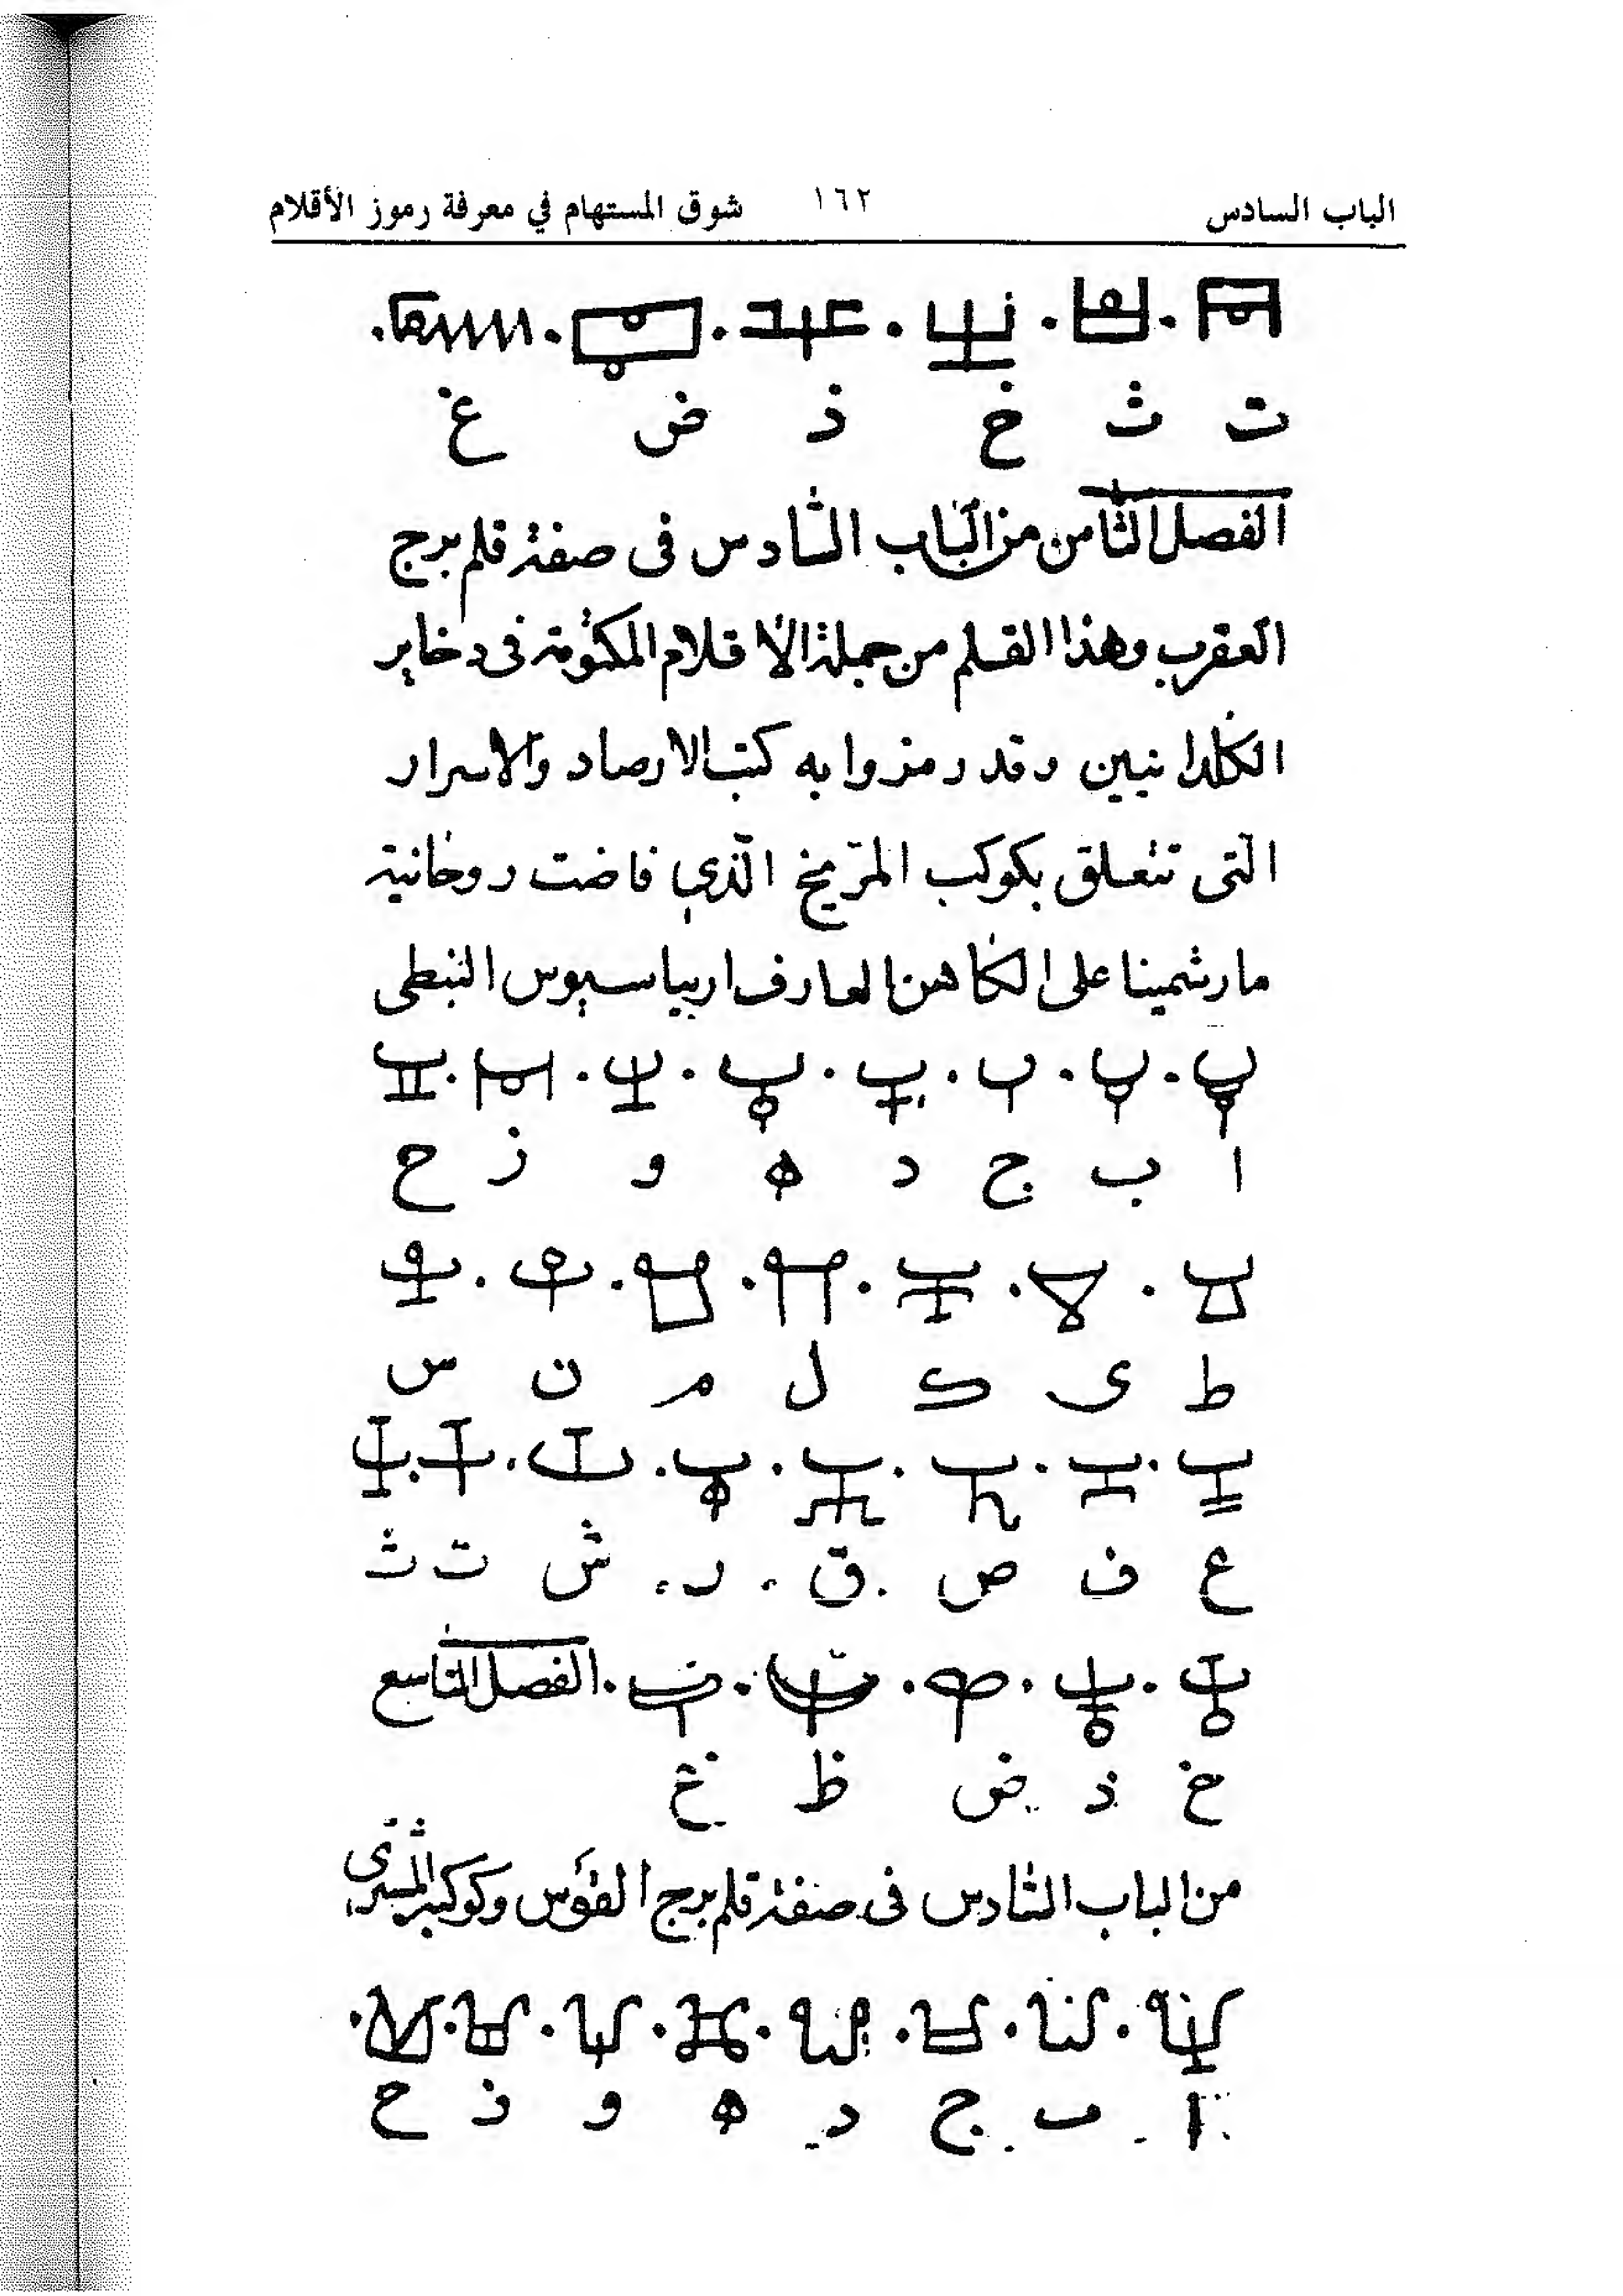 الباب السادس ١٦٢ شوق المستهام في معرفة رموز الأقلام
ت ث خ ذ ض غ
الفصل الثامن من الباب السادس فى صفة قلم برج
العقرب وهذا القلم من جملة الاقلام المكتومة فى دخاير
الكلدانيين وقد رمزوا به كتب الارصاد والاسرار
التى تتعلق بكوكب المريخ الذي فاضت روحانية
مارشمينا على الكاهن العارف اربياسيوس النبطى
ا ب ج د ه و ز ح
ط ى ك ل م ن س
ع ف ص ق ر ش ت ث
الفصل التاسع
خ ذ ض ظ غ
من الباب السادس فى صفة قلم برج القوس وكوكبه المشترى
ا ب ج د ه و ز ح